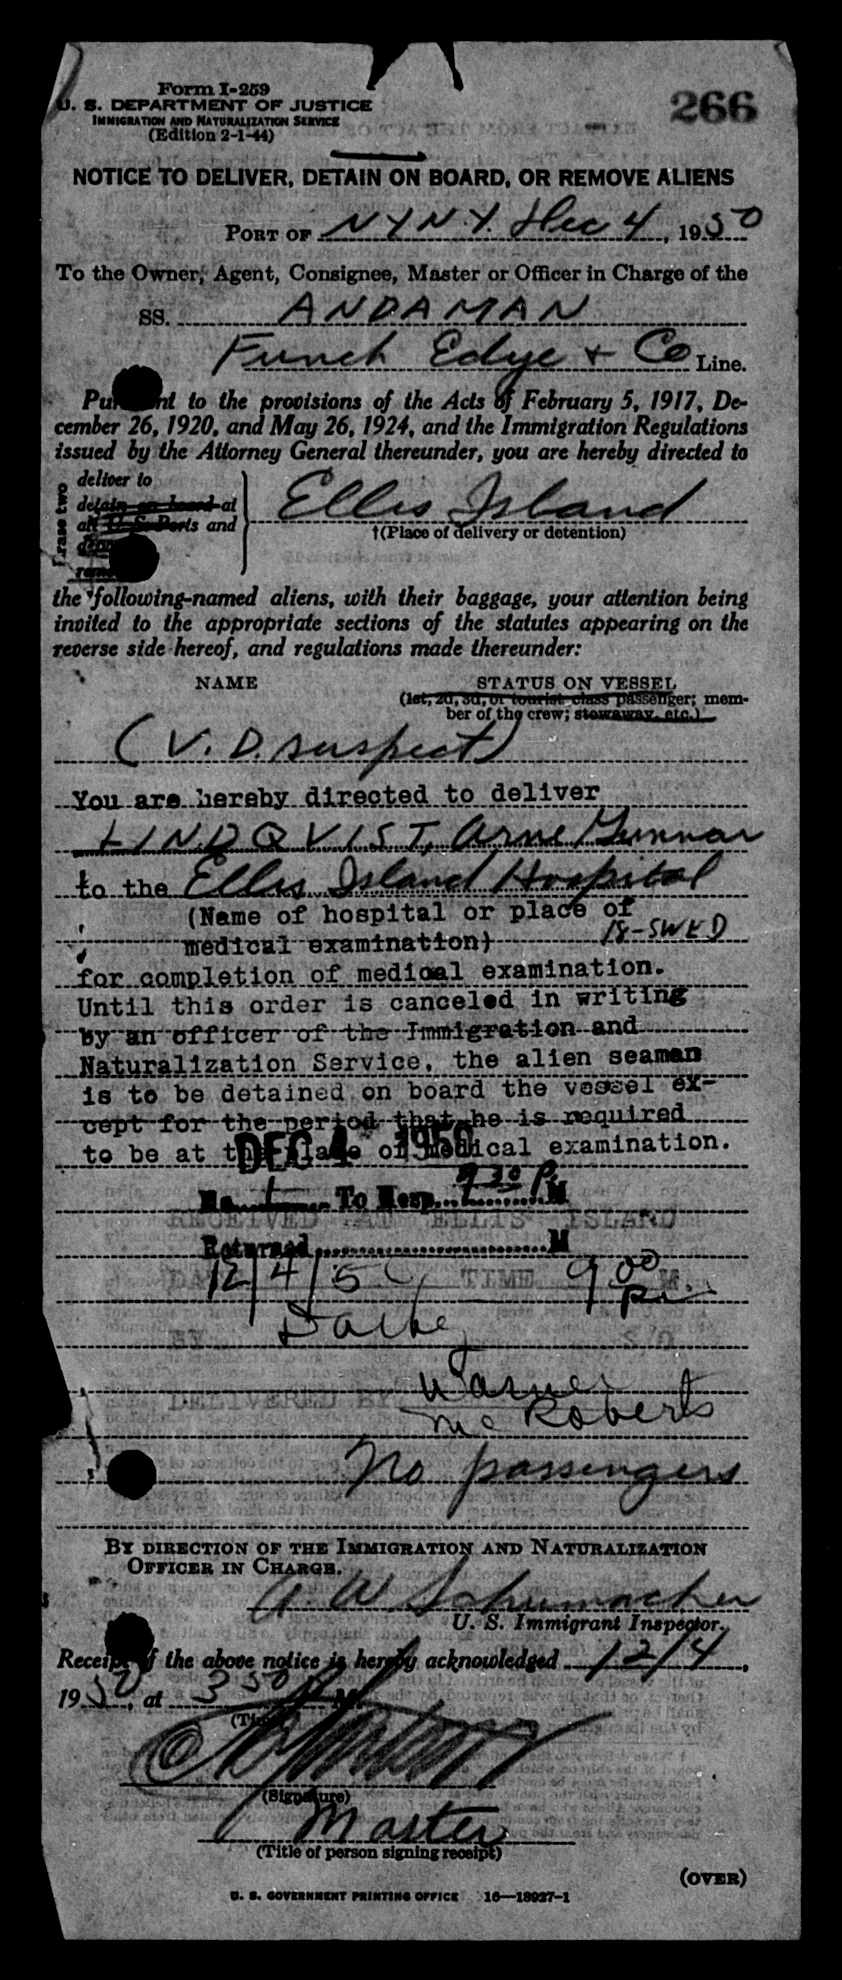 Form I-259
U. S. DEPARTMENT OF JUSTICE
IMMIGRATION AND NATURALIZATION SERVICE
(Edition 2-1-44)
266
NOTICE TO DELIVER, DETAIN ON BOARD, OR REMOVE ALIENS
PORT OF NYNY. Dec 4, 1950
To the Owner, Agent, Consignee, Master or Officer in Charge of the
SS. ANDAMAN
Funch Edye + Co Line.
to the provisions of the Acts of February 5, 1917, De-
cember 26, 1920, and May 26, 1924, and the Immigration Regulations
issued by the Attorney General thereunder, you are hereby directed to
Erase two
deliver to
detain on board at
all U. S. Ports and
Ellis Island
†(Place of delivery or detention)
the following-named aliens, with their baggage, your attention being
invited to the appropriate sections of the statutes appearing on the
reverse side hereof, and regulations made thereunder:
NAME STATUS ON VESSEL
(1st, 2d, 3d, or tourist class passenger; mem-
ber of the crew; stowaway, etc.)
(V. D. suspect)
You are hereby directed to deliver
LINDQVIST, Arne Gunnar
to the Ellis Island Hospital
(Name of hospital or place of
medical examination) 18-SWED
for completion of medical examination.
Until this order is canceled in writing
by an officer of the Immigration and
Naturalization Service, the alien seaman
is to be detained on board the vessel ex-
cept for the period that he is required
to be at the place of medical examination.
DEC 4 1950
No. 1 To Hosp. 9 30 P M
RECEIVED AT ELLIS ISLAND
Returned M
DATE 12/4/50 TIME 9 00 M.
BY S/O
DELIVERED BY Warner
McRoberts
No passengers
BY DIRECTION OF THE IMMIGRATION AND NATURALIZATION
OFFICER IN CHARGE.
A. W. Schumacher
U. S. Immigrant Inspector.
Receipt of the above notice is hereby acknowledged 12/4,
1950, at 3 50 M.
(Time)
(Signature)
Master
(Title of person signing receipt)
(OVER)
U. S. GOVERNMENT PRINTING OFFICE 16—18927-1